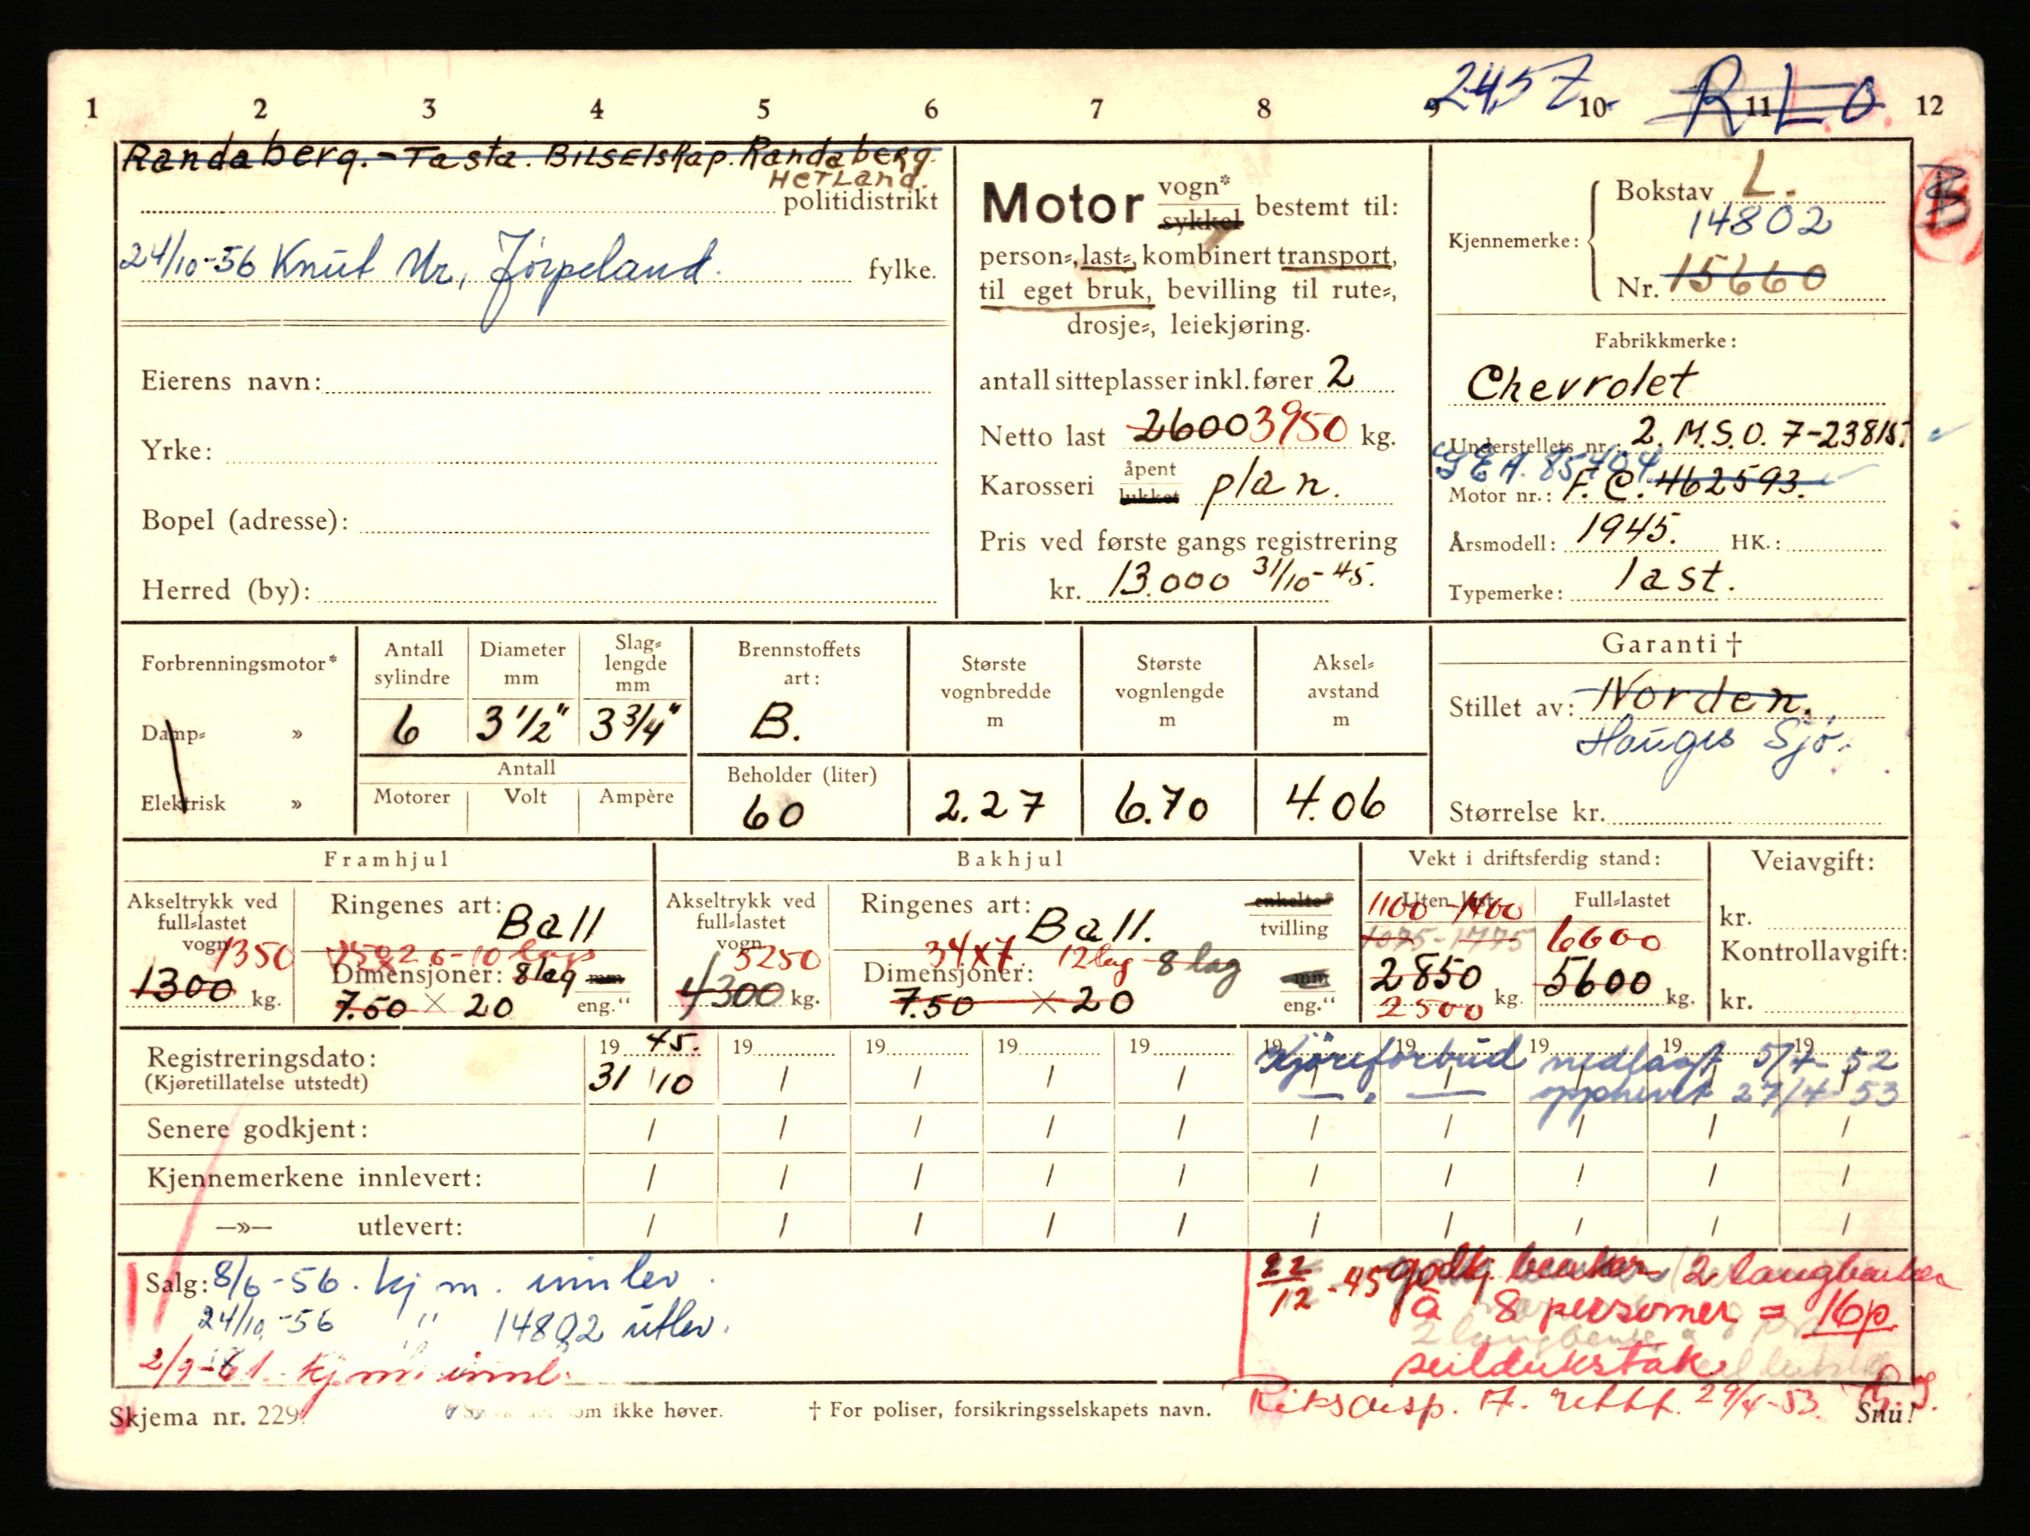 1 2 3 4 5 6 7 8 9 10 11 12
2457. R L.O.
Randaberg.-Tasta. Bilselskap. Randaberg.
Hetland.
politidistrikt
24/10-56 Knut Mr, Jørpeland. fylke.
Eierens navn:
Yrke:
Bopel (adresse):
Herred (by):
Motor vogn* sykkel bestemt til:
person-, last-, kombinert transport,
til eget bruk, bevilling til rute-,
drosje-, leiekjøring.
antall sitteplasser inkl. fører 2
Netto last 2600 3950 kg.
Karosseri åpent lukket plan.
Pris ved første gangs registrering
kr. 13.000 31/10-45.
Bokstav L.
Kjennemerke: 14802
Nr. 15660
Fabrikkmerke:
Chevrolet
Understellets nr.: 2. M.S.O. 7-23815.
G E A. 85404
Motor nr.: F.C. 462593.
Årsmodell: 1945. HK.:
Typemerke: last.
Forbrenningsmotor*
Damp- »
Elektrisk »
Antall sylindre
6
Diameter mm
3 1/2"
Slag-lengde mm
3 3/4"
Antall
Motorer Volt Ampère
Brennstoffets art:
B.
Beholder (liter)
60
Største vognbredde m
2.27
Største vognlengde m
6.70
Aksel-avstand m
4.06
Garanti †
Stillet av: Norden.
Hauges Sjø.
Størrelse kr.
Framhjul
Akseltrykk ved full-lastet vogn
1350
1300 kg.
Ringenes art: Ball
Dimensjoner: 8 lag mm
7.50 × 20 eng."
Bakhjul
Akseltrykk ved full-lastet vogn
5250
4300 kg.
Ringenes art: Ball. enkelte* tvilling
34x7 12 lag 8 lag
Dimensjoner: mm
7.50 × 20 eng."
Vekt i driftsferdig stand:
Uten last Full-lastet
1100-1400 6600
1075-1775
2850 kg. 5600 kg.
2500
Veiavgift:
kr.
Kontrollavgift:
kr.
Registreringsdato: 19 45. 19 19 19 19 19 19 19 19 19
(Kjøretillatelse utstedt) 31/10 / / / / / / / / /
Kjøreforbud nedlagt 5/4-52
— " — opphevet 27/4-53
Senere godkjent: / / / / / / / / / /
Kjennemerkene innlevert: / / / / / / / / / /
—»— utlevert: / / / / / / / / / /
Salg: 8/6-56. kj m. innlev.
24/10-56 " 14802 utlev.
2/9-61. kj.m. innl.
22/12-45 godkj. benker 2 langbenker
à 8 personer = 16p.
seildukstak
Skjema nr. 229. som ikke høver. † For poliser, forsikringsselskapets navn. 29/4-53. Snu!